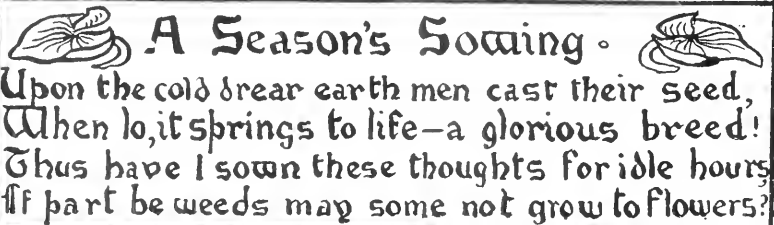 A Season's Sowing.
Upon the cold drear earth men cast their seed,
When lo, it springs to life—a glorious breed!
Thus have I sown these thoughts for idle hours,
If part be weeds may some not grow to flowers?